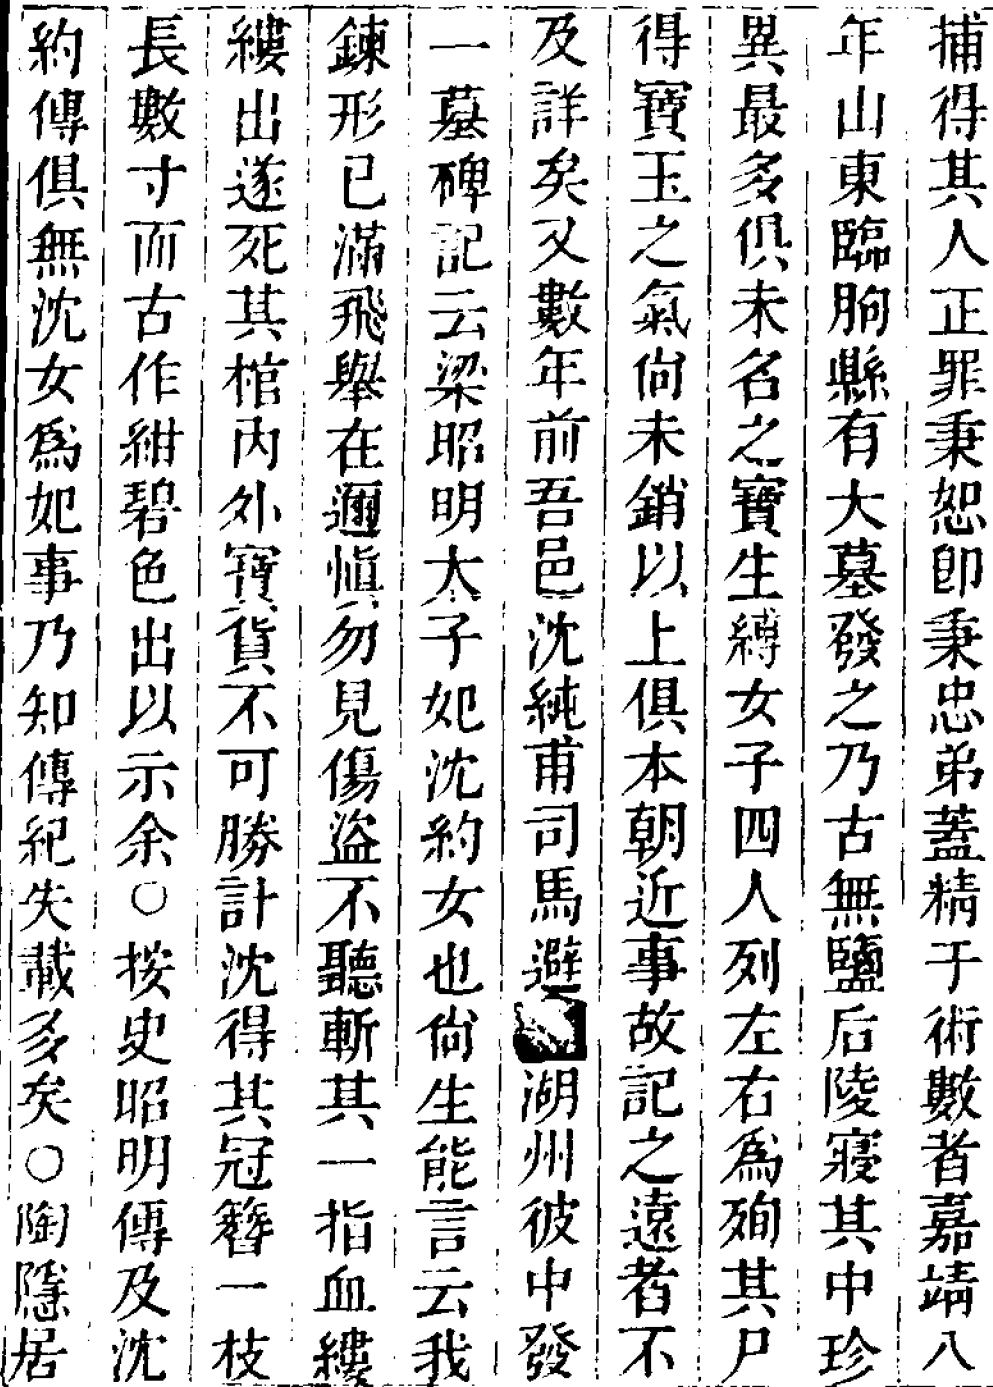 捕得其人正罪秉恕卽秉忠弟蓋精于術數者嘉靖八
年山東臨朐縣有大墓發之乃古無鹽后陵寢其中珍
異最多俱未名之寶生縛女子四人列左右爲殉其尸
得寶玉之氣尙未銷以上俱本朝近事故記之遠者不
及詳矣又數年前吾邑沈純甫司馬避湖州彼中發
一墓碑記云梁昭明太子妃沈約女也尙生能言云我
鍊形已滿飛舉在邇愼勿見傷盜不聽斬其一指血縷
縷出遂死其棺內外寶貨不可勝計沈得其冠簪一枝
長數寸而古作紺碧色出以示余○按史昭明傳及沈
約傳俱無沈女爲妃事乃知傳紀失載多矣○陶隱居